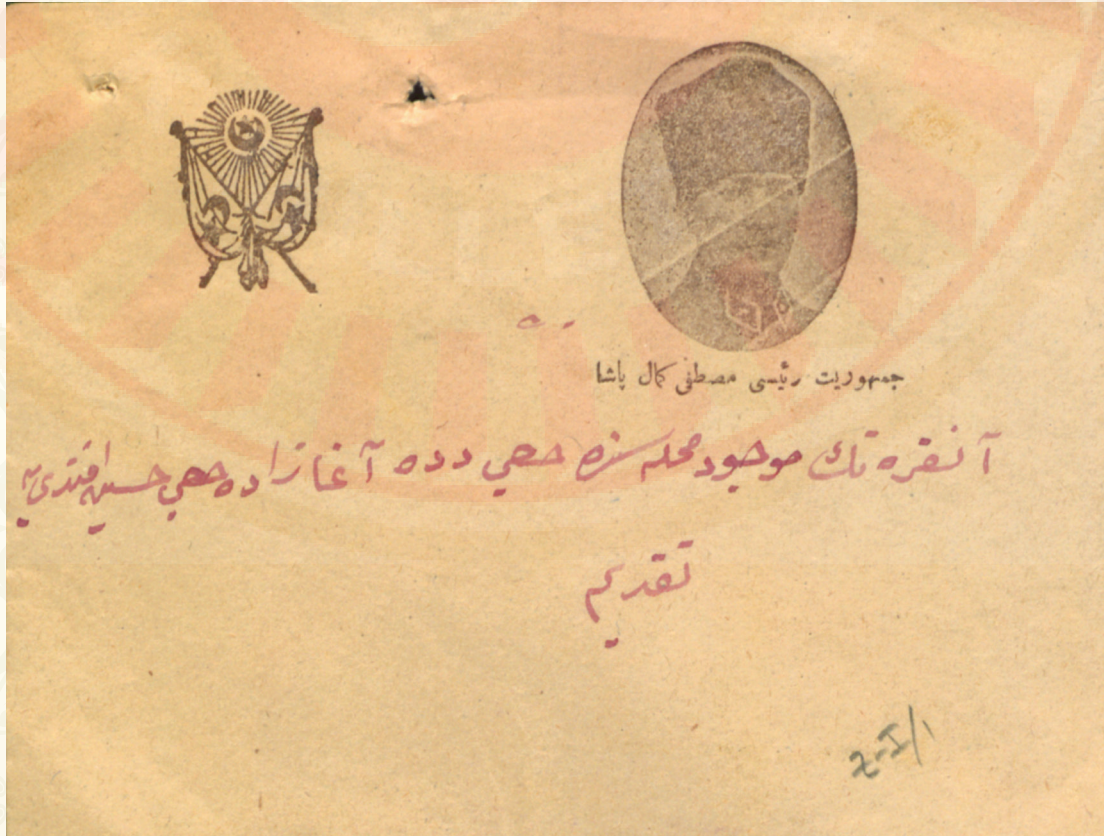 جمهوريت رئيسى مصطفى كمال پاشا
آنقره نك موجود محله سنده حاجي دده آغا زاده حاجي حسين افندي يه
تقديم